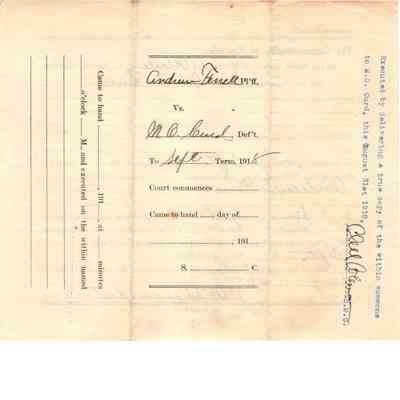 Andrew Terrell Pl'ff,
Vs.
M. O. Curd, Def't.
To Sept Term, 1918
Court commences
Came to hand ......, day of
, 191
S. C.
Came to hand , 191 , at minutes
o'clock M., and executed on the within named
Executed by delivering a true copy of the within summons
to M.O. Curd, this August 31st 1918.